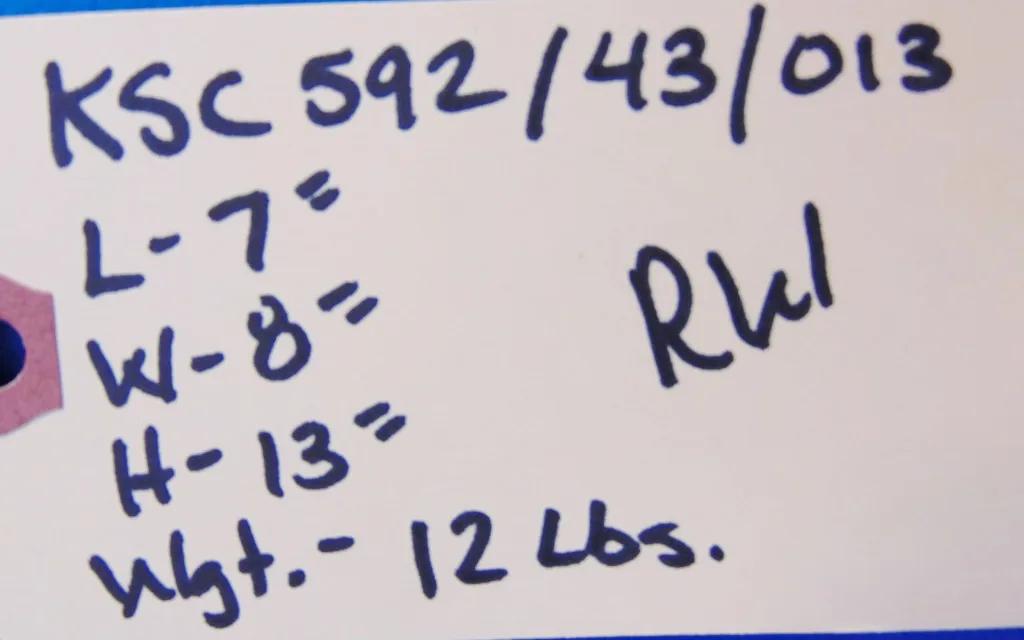 KSC 592/43/013
L-7"
W-8"
RW
H-13"
Wgt.- 12 Lbs.